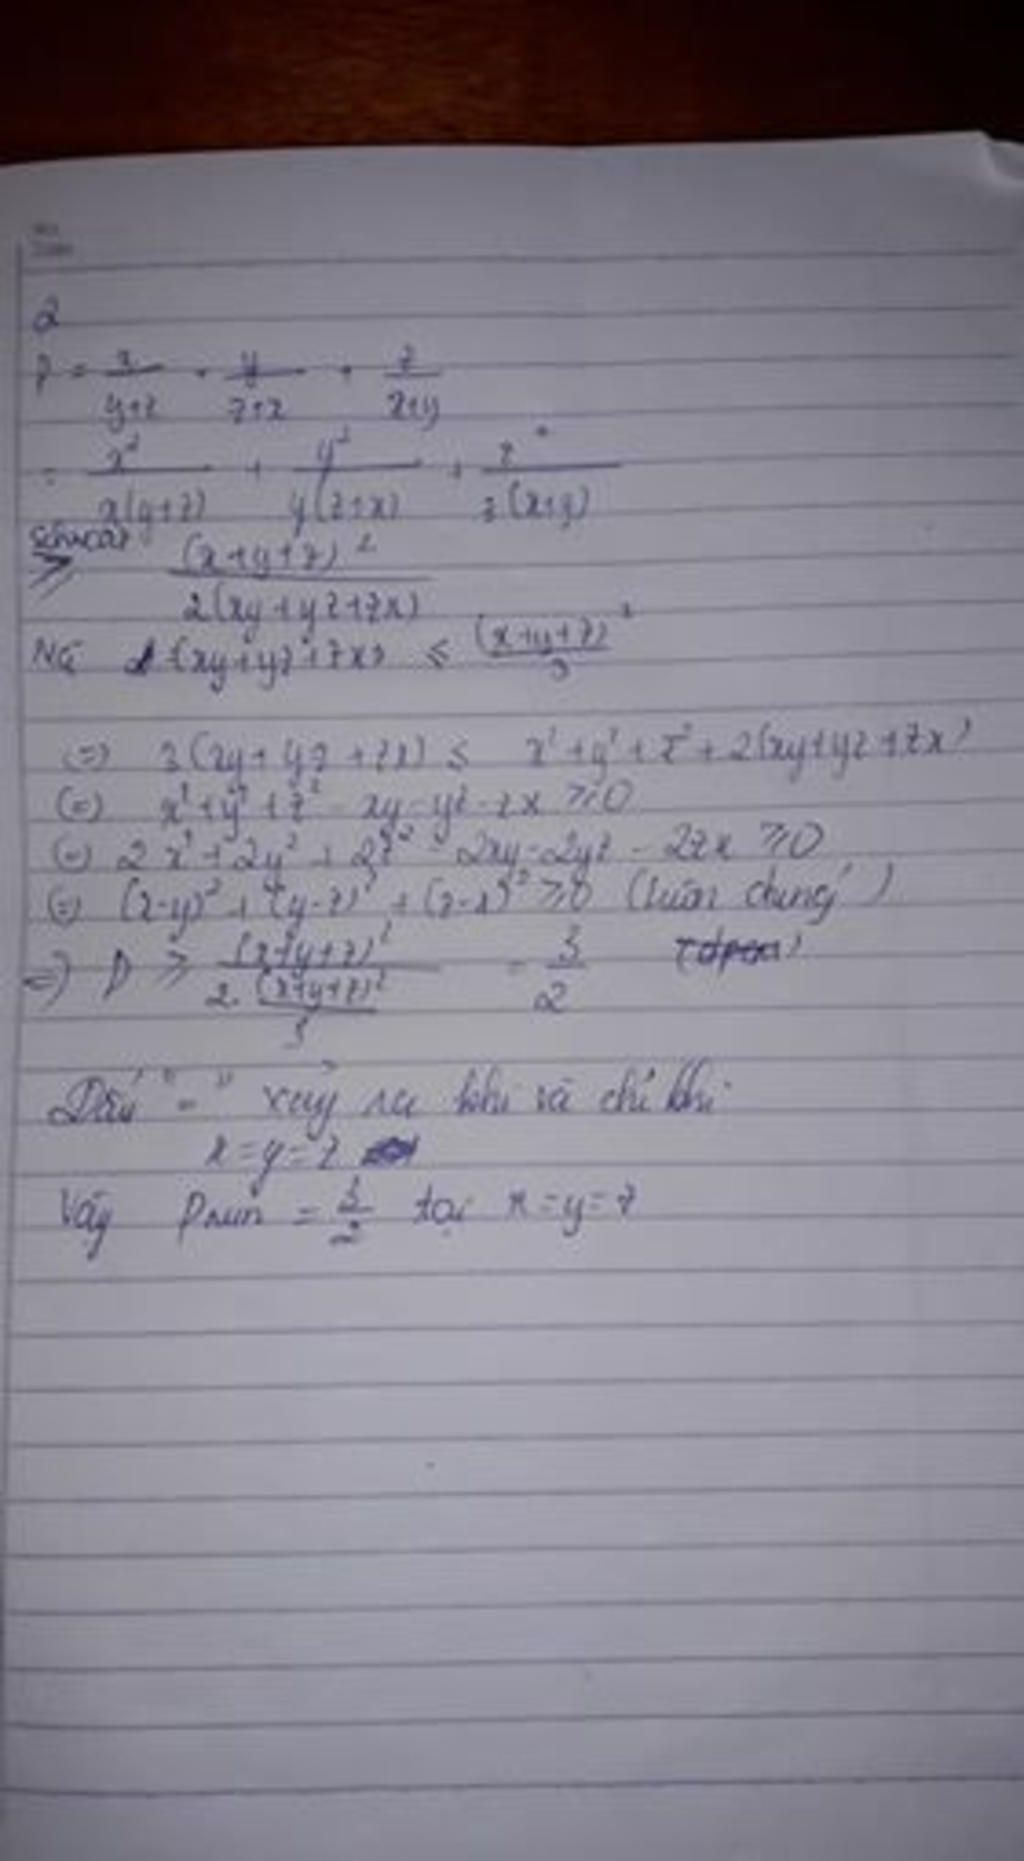 2
P = x/(y+z) + y/(z+x) + z/(x+y)
= x²/(x(y+z)) + y²/(y(z+x)) + z²/(z(x+y))
≥ (x+y+z)²/(2(xy+yz+zx))
(xy+yz+zx) ≤ (x+y+z)²/3
(=) 3(xy+yz+zx) ≤ x²+y²+z²+2(xy+yz+zx)
(=) x²+y²+z²-xy-yz-zx ≥ 0
(=) 2x²+2y²+2z²-2xy-2yz-2zx ≥ 0
(=) (x-y)²+(y-z)²+(z-x)² ≥ 0 (luôn đúng)
=> P ≥ (x+y+z)²/(2.(x+y+z)²/3) = 3/2
Dấu "=" xảy ra khi và chỉ khi
x=y=z
Vậy Pmin = 3/2 tại x=y=z